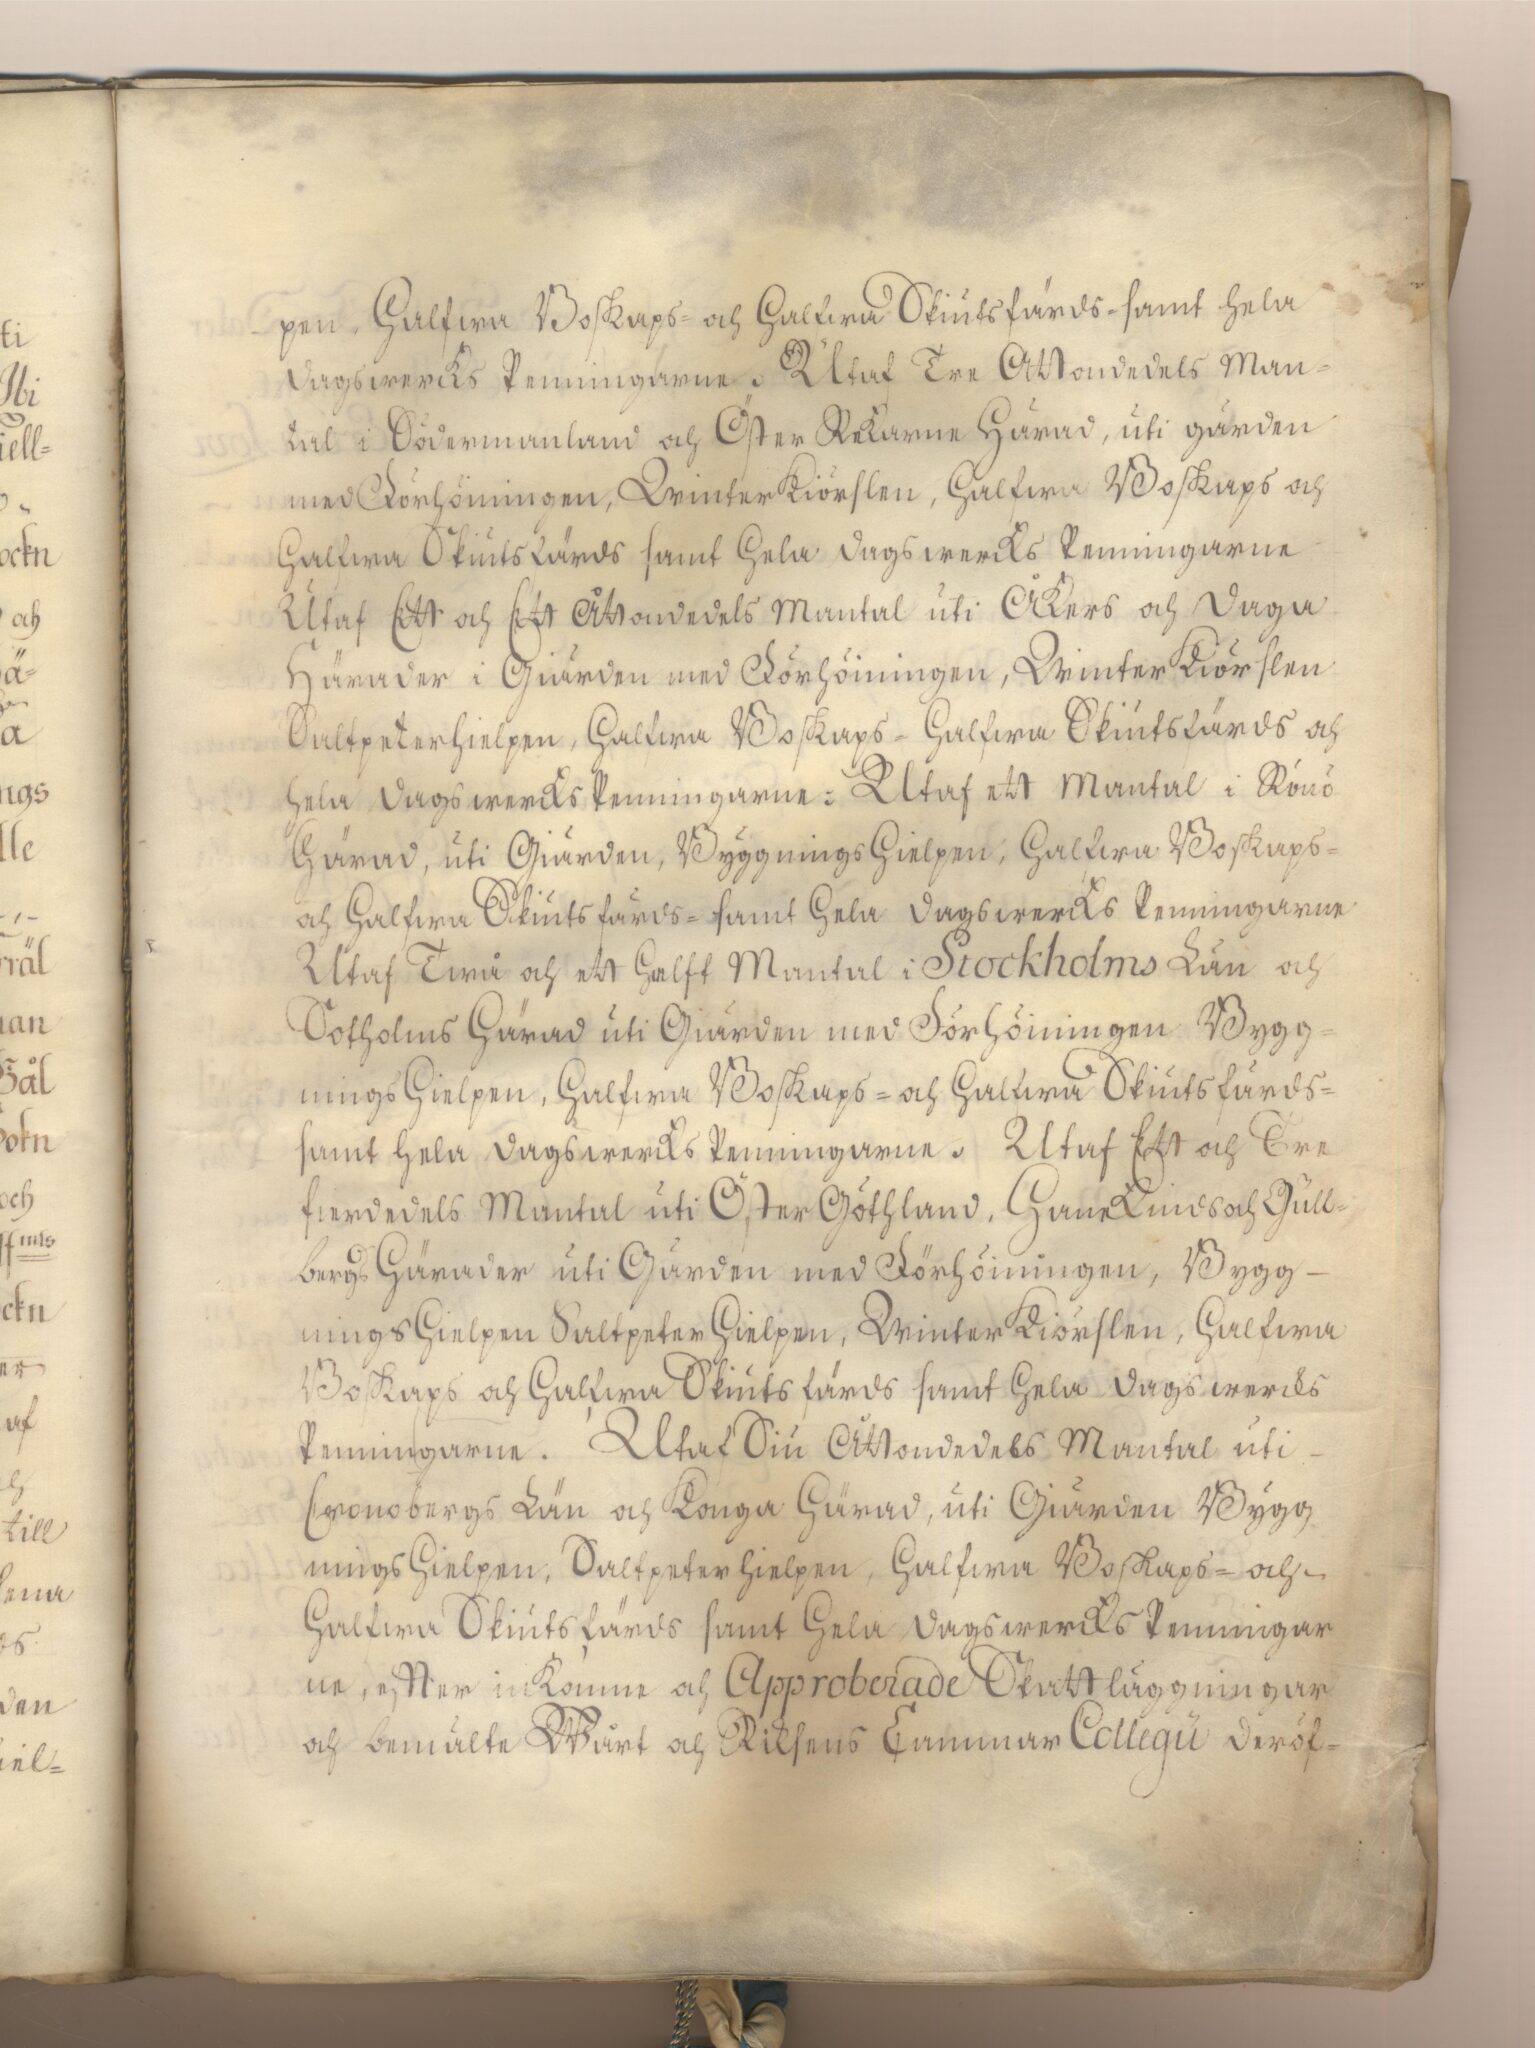 pen, Halfwa Boskaps- och Halfwa Skiutsfärds- samt hela
dagswercks Penningarne. Utaf Tre Attondedels Man-
tal i Södermanland och Öster Rekarne Härad, uti gärden
med Förhöiningen, Winterkiörslen, Halfwa Boskaps och
Halfwa Skiutsfärds samt Hela dagswercks Penningarne
Utaf Ett och Ett Åttondedels Mantal uti Åkers och Daga
Härader i Giärden med Förhöiningen, Winterkiörslen
Saltpeterhielpen, Halfwa Boskaps- Halfwa Skiutsfärds och
hela dagswercks Penningarne: Utaf ett Mantal i Rönö
Härad, uti Giärden, Byggnings Hielpen, Halfwa Boskaps-
och Halfwa Skiutsfärds- samt Hela dagswercks Penningarne
Utaf Twå och ett Halft Mantal i Stockholms Län och
Sotholms Härad uti Giärden med Förhöiningen Bygg-
nings Hielpen, Halfwa Boskaps- och Halfwa Skiutsfärds-
samt hela dagswercks Penningarne. Utaf Ett och Tre
fierdedels Mantal uti Öster Göthland, Hanekinds och Gull-
bergs Härader uti Gärden med Förhöiningen, Bygg-
nings Hielpen Saltpeter Hielpen, Winterkiörslen, Halfwa
Boskaps och Halfwa Skiutsfärds samt Hela dagswercks
Penningarne. Utaf Siu Åttondedels Mantal uti
Cronobergs Län och Konga Härad, uti Giärden Bygg
nings Hielpen, Saltpeterhielpen, Halfwa Boskaps- och
Halfwa Skiutsfärds samt Hela dagswercks Penningar
ne, efter inkomne och Approberade Skattläggningar
och bemälte Wårt och Riksens Cammar Collegii deröf-